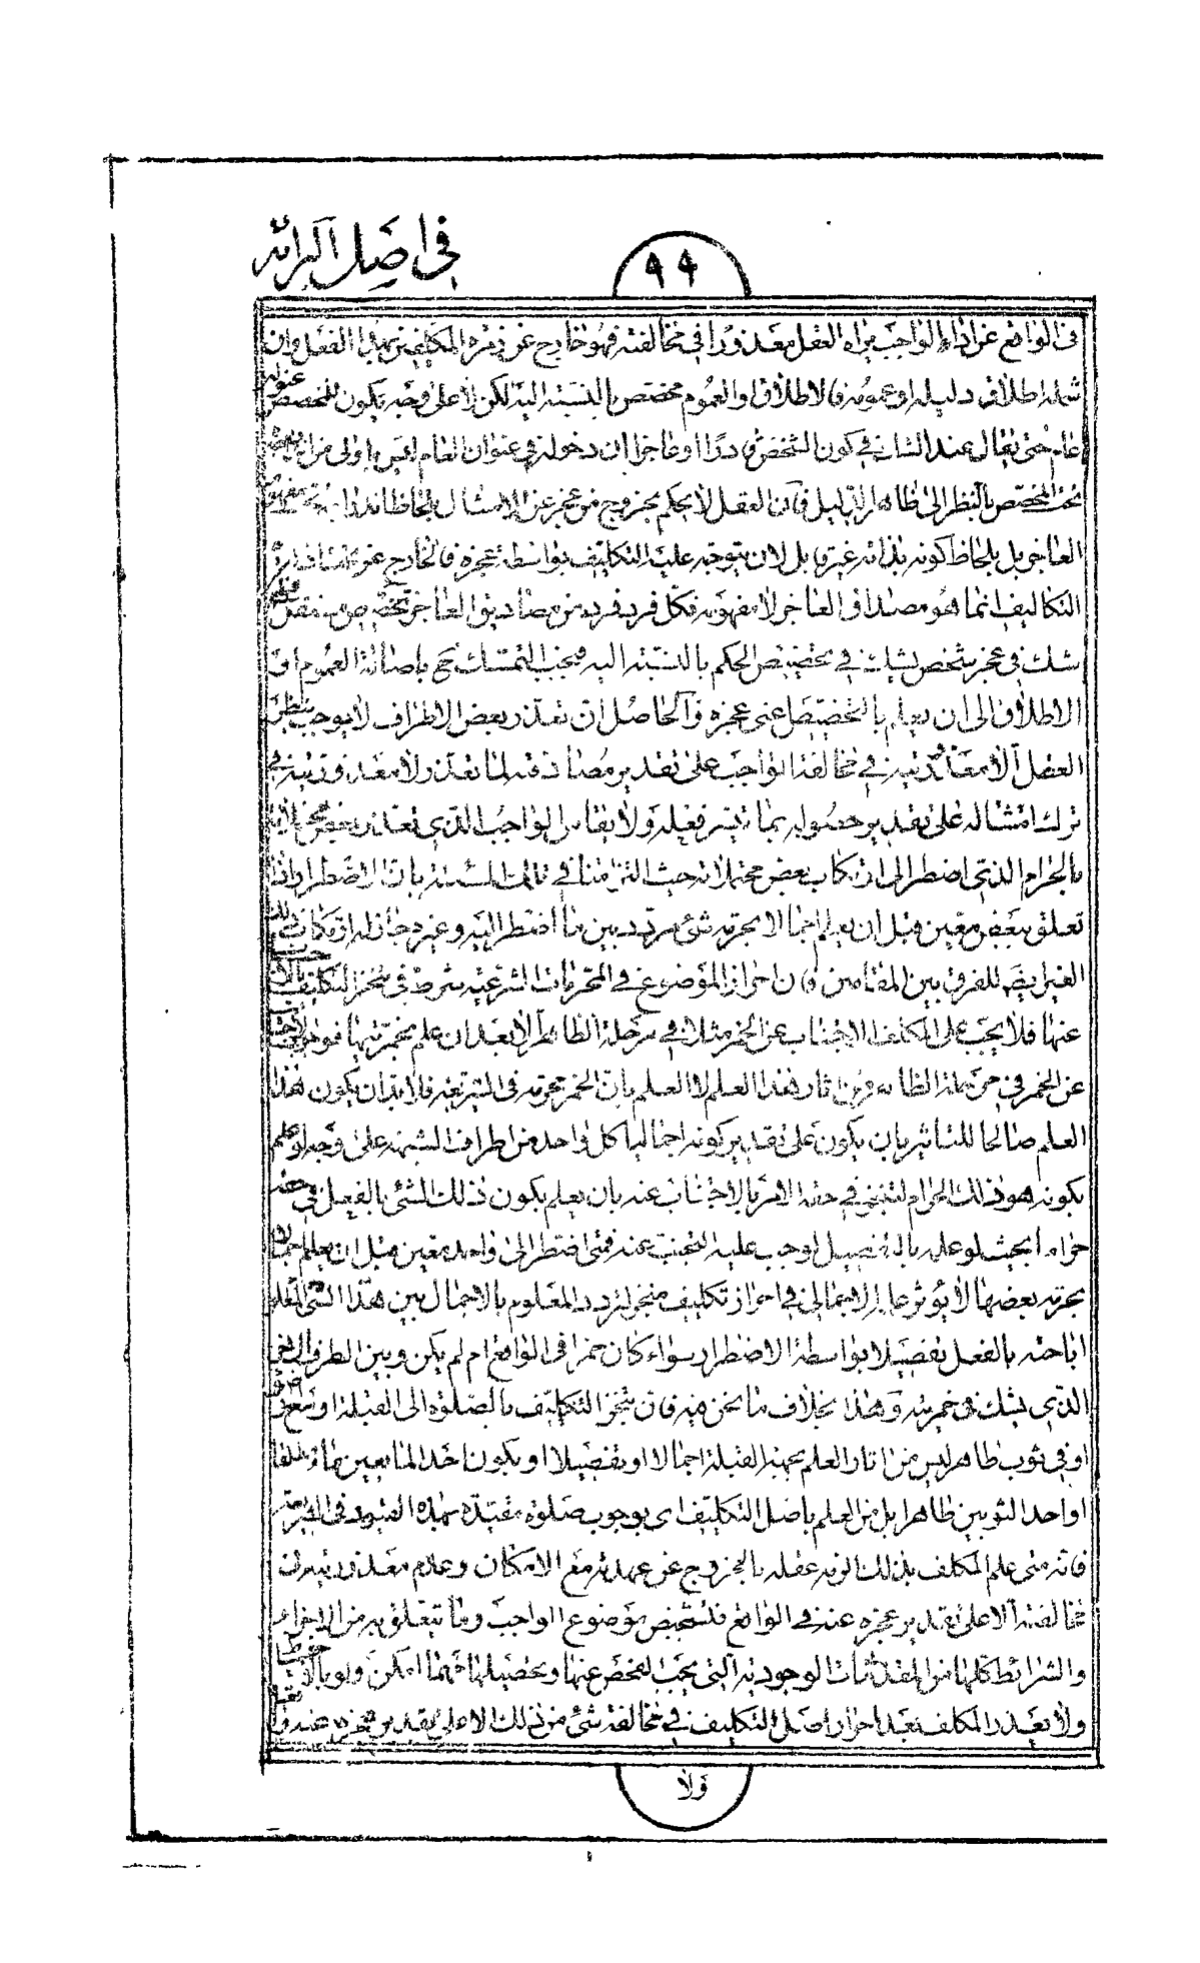 في اصل البرائة
٩٩
في الواقع عن اداء الواجب يراه العقل معذورا في مخالفته فهو خارج عن زمرة المكلفين بهذا الفعل وان
شمله اطلاق دليله او عمومه فالاطلاق او العموم مختص بالنسبة اليه لكن لا على وجه يكون للمخصص عنوان
عام حتى يقال عند الشك في كون الشخص قادرا او عاجزا ان دخوله في عنوان العام ليس باولى من اندراجه
تحت المخصص بالنظر الى ظاهر الدليل فان العقل لا يحكم بخروج من عجز عن الامتثال بلحاظ اندراجه تحت مفهوم
العاجز بل بلحاظ كونه بذاته غير قابل لان يتوجه عليه التكليف بواسطة عجزه فالخارج عن
التكاليف انما هو مصداق العاجز لا مفهومه فكل فرد فرد من مصاديق العاجز تخصيص مستقل
شك في عجز شخص يشك في تخصيص الحكم بالنسبة اليه فيجب التمسك ح باصالة العموم او
الاطلاق الى ان يعلم بالتخصيص اعني عجزه والحاصل ان تعذر بعض الاطراف لا يوجب بنظر
العقل الا معذوريته في مخالفة الواجب على تقدير مصادفته لما تعذر لا معذوريته في
ترك امتثاله على تقدير حصوله بما تيسر فعله ولا يقاس الواجب الذي تعذر بعض محتملاته
بالحرام الذي اضطر الى ارتكاب بعض محتملاته حيث التزمنا في تلك المسئلة بان الاضطرار اذا
تعلق ببعض معين قبل ان يعلم اجمالا بحرمة شئ مردد بين ما اضطر اليه وغيره جاز له ارتكاب ذلك
الغير ايضا للفرق بين المقامين فان احراز الموضوع في المحرمات الشرعية شرط في تنجز التكليف بالاجتناب
عنها فلا يجب على المكلف الاجتناب عن الخمر مثلا في مرحلة الظاهر الا بعد ان علم بخمريتها فوجوب الاجتناب
عن الخمر في مرحلة الظاهر من اثار هذا العلم لا العلم بان الخمر محرمة في الشريعة فلا بد ان يكون هذا
العلم صالحا للتأثير بان يكون على تقدير كونه اجماليا كل واحد من اطراف الشبهة على وجه لو علم
بكونه هو ذلك الحرام لتنجز في حقه الامر بالاجتناب عنه بان يعلم بكون ذلك الشئ بالفعل في حقه
حراما بحيث لو علمه بالتفصيل لوجب عليه التجنب عنه فمتى اضطر الى واحد معين قبل ان يعلم اجمالا
بحرمة بعضها لا يؤثر علمه الاجمالي في احراز تكليف منجز لتردد المعلوم بالاجمال بين هذا الشئ المعلوم
اباحته بالفعل تفصيلا بواسطة الاضطرار سواء كان خمرا في الواقع ام لم يكن وبين الطرف الاخر
الذي يشك في خمريته وهذا بخلاف ما نحن فيه فان تنجز التكليف بالصلوة الى القبلة او مع الوضوء
او في ثوب طاهر ليس من اثار العلم بجهة القبلة اجمالا او تفصيلا او بكون احد المايعين ماء مطلقا
او احد الثوبين طاهرا بل من العلم باصل التكليف اي بوجوب صلوة مقيدة بهذه القيود في الشريعة
فانه متى علم المكلف بذلك الزمه عقله بالخروج عن عهدته مع الامكان وعدم معذوريته في
مخالفته الا على تقدير عجزه عنه في الواقع فتشخيص موضوع الواجب وما يتعلق به من الاجزاء
والشرائط كلها من المقدمات الوجودية التي يجب الفحص عنها وتحصيلها مهما امكن ولو بالاحتياط
ولا يعذر المكلف بعد احراز اصل التكليف في مخالفة شئ من ذلك الا على تقدير عجزه عنه
ولا